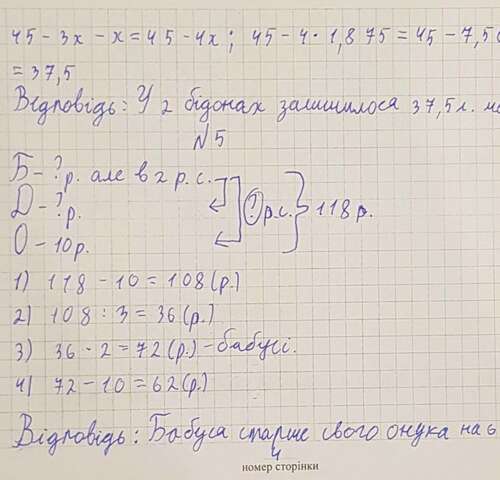 45 - 3x - x = 45 - 4x ; 45 - 4 · 1,875 = 45 - 7,5
= 37,5
Відповідь: У 2 бідонах залишилося 37,5 л.
N 5
Б - ? р. але в 2 р. с.
Д - ? р.
О - 10 р.
? р. с.
118 р.
1) 118 - 10 = 108 (р.)
2) 108 : 3 = 36 (р.)
3) 36 · 2 = 72 (р.) - бабусі.
4) 72 - 10 = 62 (р.)
Відповідь: Бабуса старше свого онука на 6
4
номер сторінки